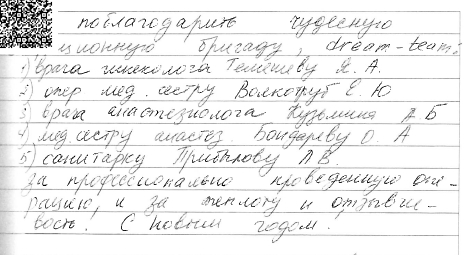 поблагодарить чудесную
ционную бригаду, dream-team:
1) врача гинеколога Темешеву Я. А.
2) опер мед. сестру Волкотруб Е. Ю
3) врача анастезиолога Кузьмина А Б
4) мед. сестру анастез. Бондареву О. А
5) санитарку Прибылову Л В.
за профессионально проведенную опе-
рацию, и за теплоту и отзывчи-
вость. С Новым годом.